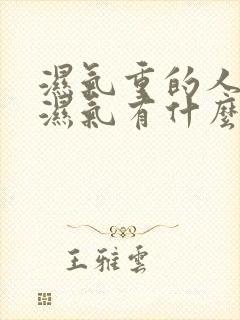 濕氣重的人
濕氣有什麼
王雅雲